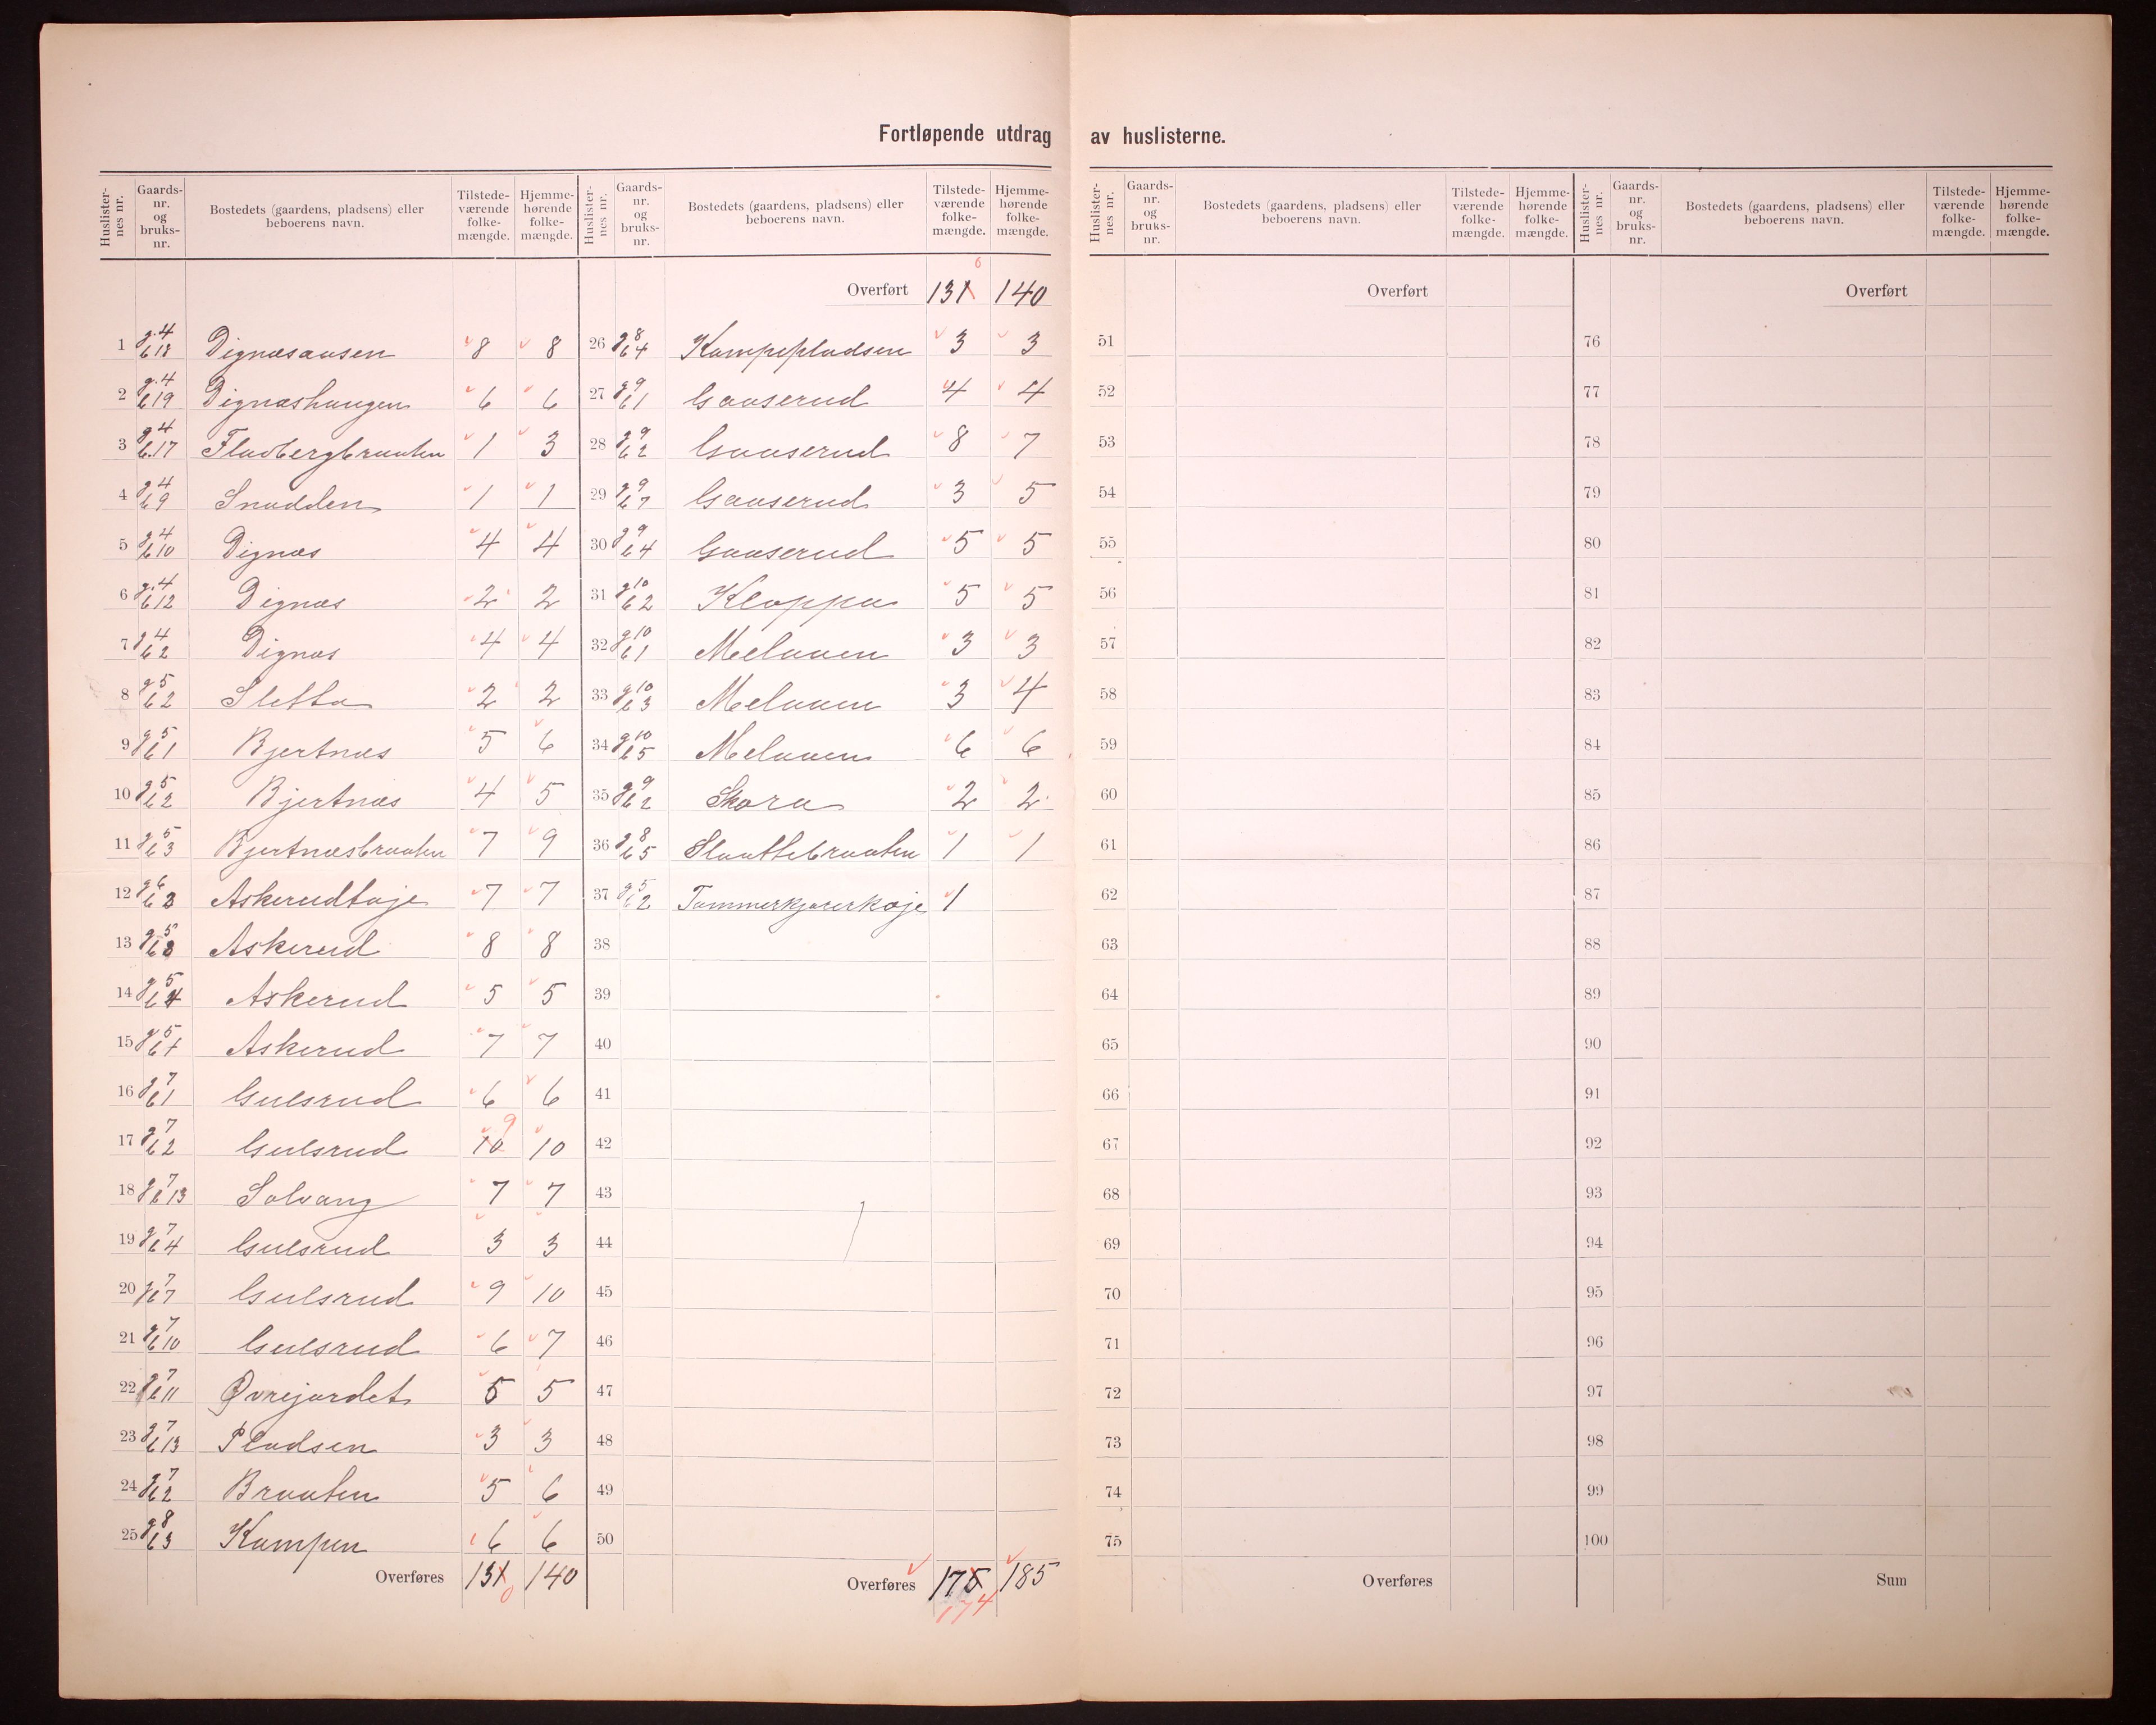 Fortløpende utdrag av huslisterne.
Huslisternes nr. | Gaards-nr. og bruks-nr. | Bostedets (gaardens, pladsens) eller beboerens navn. | Tilstedeværende folkemængde. | Hjemmehørende folkemængde.
1 g.4 b.18 Dignæsaasen 8 8
2 g.4 b.19 Dignæshaugen 6 6
3 g.4 b.17 Fladbergbraaten 1 3
4 g.4 b.9 Snadden 1 1
5 g.4 b.10 Dignæs 4 4
6 g.4 b.12 Dignæs 2 2
7 g.4 b.2 Dignæs 4 4
8 g.5 b.2 Sletta 2 2
9 g.5 b.1 Bjertnæs 5 6
10 g.5 b.2 Bjertnæs 4 5
11 g.5 b.3 Bjertnæsbraaten 7 9
12 g.6 b.3 Askerudtajet 7 7
13 g.5 Askerud 8 8
14 g.5 b.4 Askerud 5 5
15 g.5 Askerud 7 7
16 g.7 b.1 Gulsrud 6 6
17 g.7 b.2 Gulsrud 10 9 10
18 g.7 b.13 Solvang 7 7
19 g.7 b.4 Gulsrud 3 3
20 g.7 b.7 Gulsrud 9 10
21 g.7 b.10 Gulsrud 6 7
22 g.7 b.11 Øvrejordet 5 5
23 g.7 b.13 Pladsen 3 3
24 g.7 b.2 Braaten 5 6
25 g.8 b.3 Kampen 6 6
Overføres 131 0 140
Huslisternes nr. | Gaards-nr. og bruks-nr. | Bostedets (gaardens, pladsens) eller beboerens navn. | Tilstedeværende folkemængde. | Hjemmehørende folkemængde.
Overført 131 0 140
26 g.8 b.4 Kampepladsen 3 3
27 g.9 b.1 Gaaserud 4 4
28 g.9 b.2 Gaaserud 8 7
29 g.9 b.7 Gaaserud 3 5
30 g.9 b.4 Gaaserud 5 5
31 g.10 b.2 Kloppa 5 5
32 g.10 b.1 Melaaen 3 3
33 g.10 b.3 Melaaen 3 4
34 g.10 b.5 Melaaen 6 6
35 g.9 b.2 Skara 2 2
36 g.8 b.5 Slaattebraaten 1 1
37 g.5 b.2 Tømmerkjørerkoje 1
38
39
40
41
42
43
44
45
46
47
48
49
50
Overføres 175 174 185
Huslisternes nr. | Gaards-nr. og bruks-nr. | Bostedets (gaardens, pladsens) eller beboerens navn. | Tilstedeværende folkemængde. | Hjemmehørende folkemængde.
Overført
51
52
53
54
55
56
57
58
59
60
61
62
63
64
65
66
67
68
69
70
71
72
73
74
75
Overføres
Huslisternes nr. | Gaards-nr. og bruks-nr. | Bostedets (gaardens, pladsens) eller beboerens navn. | Tilstedeværende folkemængde. | Hjemmehørende folkemængde.
Overført
76
77
78
79
80
81
82
83
84
85
86
87
88
89
90
91
92
93
94
95
96
97
98
99
100
Sum